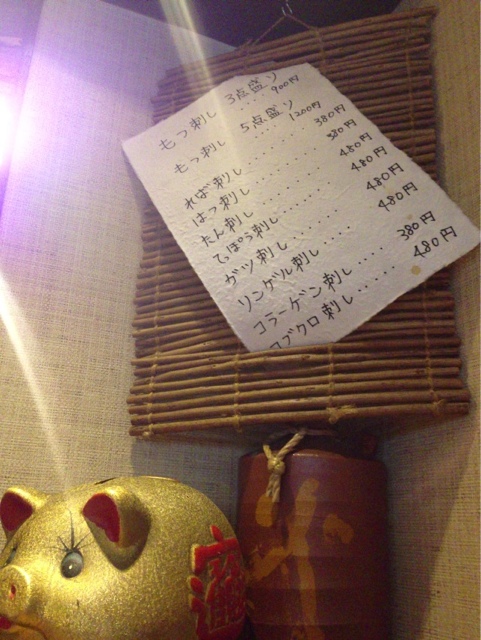 もつ刺し 3点盛り ‥ 900円
もつ刺し 5点盛り ‥ 1200円
ればー刺し ‥‥‥ 380円
はつ刺し ‥‥‥ 380円
たん刺し ‥‥‥ 480円
てっぽう刺し ‥‥‥ 480円
ガツ刺し ‥‥‥ 480円
リンゲル刺し ‥‥ 480円
コラーゲン刺し ‥‥ 380円
コブクロ刺し ‥‥‥ 480円